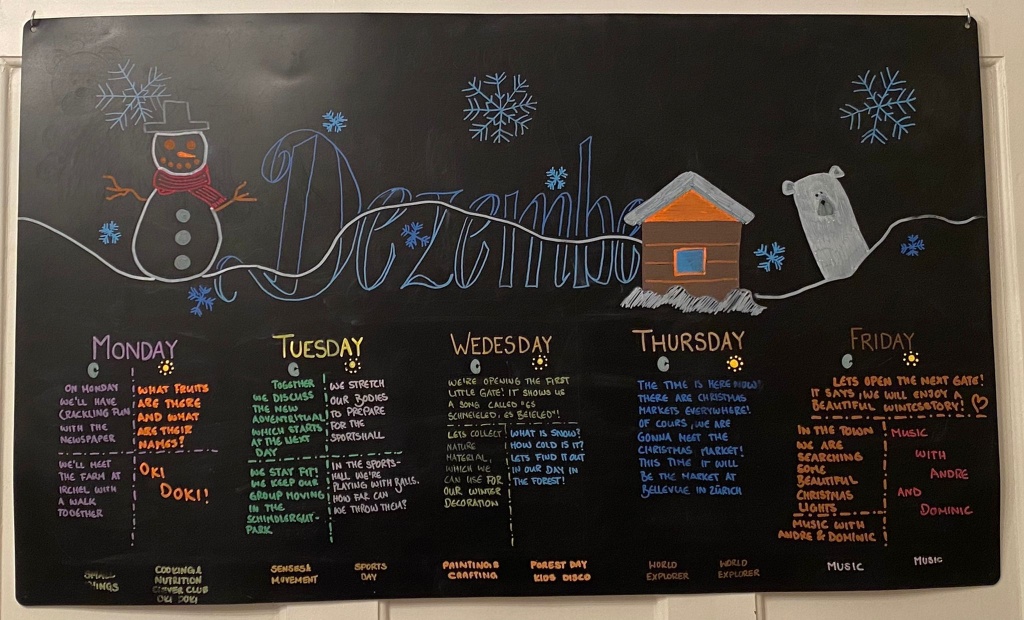 Dezembe
MONDAY
ON MONDAY
WE'LL HAVE
CRACKLING FUN
WITH THE
NEWSPAPER
WE'LL MEET
THE FARM AT
IRCHEL WITH
A WALK
TOGETHER
WHAT FRUITS
ARE THERE
AND WHAT
ARE THEIR
NAMES?
OKI
DOKI!
TUESDAY
TOGETHER
WE DISCUSS
THE NEW
ADVENTRITUAL
WHICH STARTS
AT THE NEXT
DAY
WE STAY FIT!
WE KEEP OUR
GROUP MOVING
IN THE
SCHINDLERGUT-
PARK
WE STRETCH
OUR BODIES
TO PREPARE
FOR THE
SPORTSHALL
IN THE SPORTS-
HALL WE'RE
PLAYING WITH BALLS.
HOW FAR CAN
WE THROW THEM?
WEDESDAY
WE'RE OPENING THE FIRST
LITTLE GATE! IT SHOWS US
A SONG CALLED "ES
SCHNEIELED, ES BEIELED"!
LETS COLLECT
NATURE
MATERIAL,
WHICH WE
CAN USE FOR
OUR WINTER
DECORATION
WHAT IS SNOW?
HOW COLD IS IT?
LETS FIND IT OUT
IN OUR DAY IN
THE FOREST!
THURSDAY
THE TIME IS HERE NOW!
THERE ARE CHRISTMAS
MARKETS EVERYWHERE!
OF COURS, WE ARE
GONNA MEET THE
CHRISTMAS MARKET!
THIS TIME IT WILL
BE THE MARKET AT
BELLEVUE IN ZÜRICH
FRIDAY
LETS OPEN THE NEXT GATE!
IT SAYS, WE WILL ENJOY A
BEAUTIFUL WINTERSTORY!
IN THE TOWN
WE ARE
SEARCHING
SOME
BEAUTIFUL
CHRISTMAS
LIGHTS
MUSIC WITH
ANDRE & DOMINIC
MUSIC
WITH
ANDRE
AND
DOMINIC
SMALL
THINGS
COOKING &
NUTRITION
CLEVER CLUB
OKI DOKI
SENSES &
MOVEMENT
SPORTS
DAY
PAINTING &
CRAFTING
FOREST DAY
KIDS DISCO
WORLD
EXPLORER
WORLD
EXPLORER
MUSIC
MUSIC